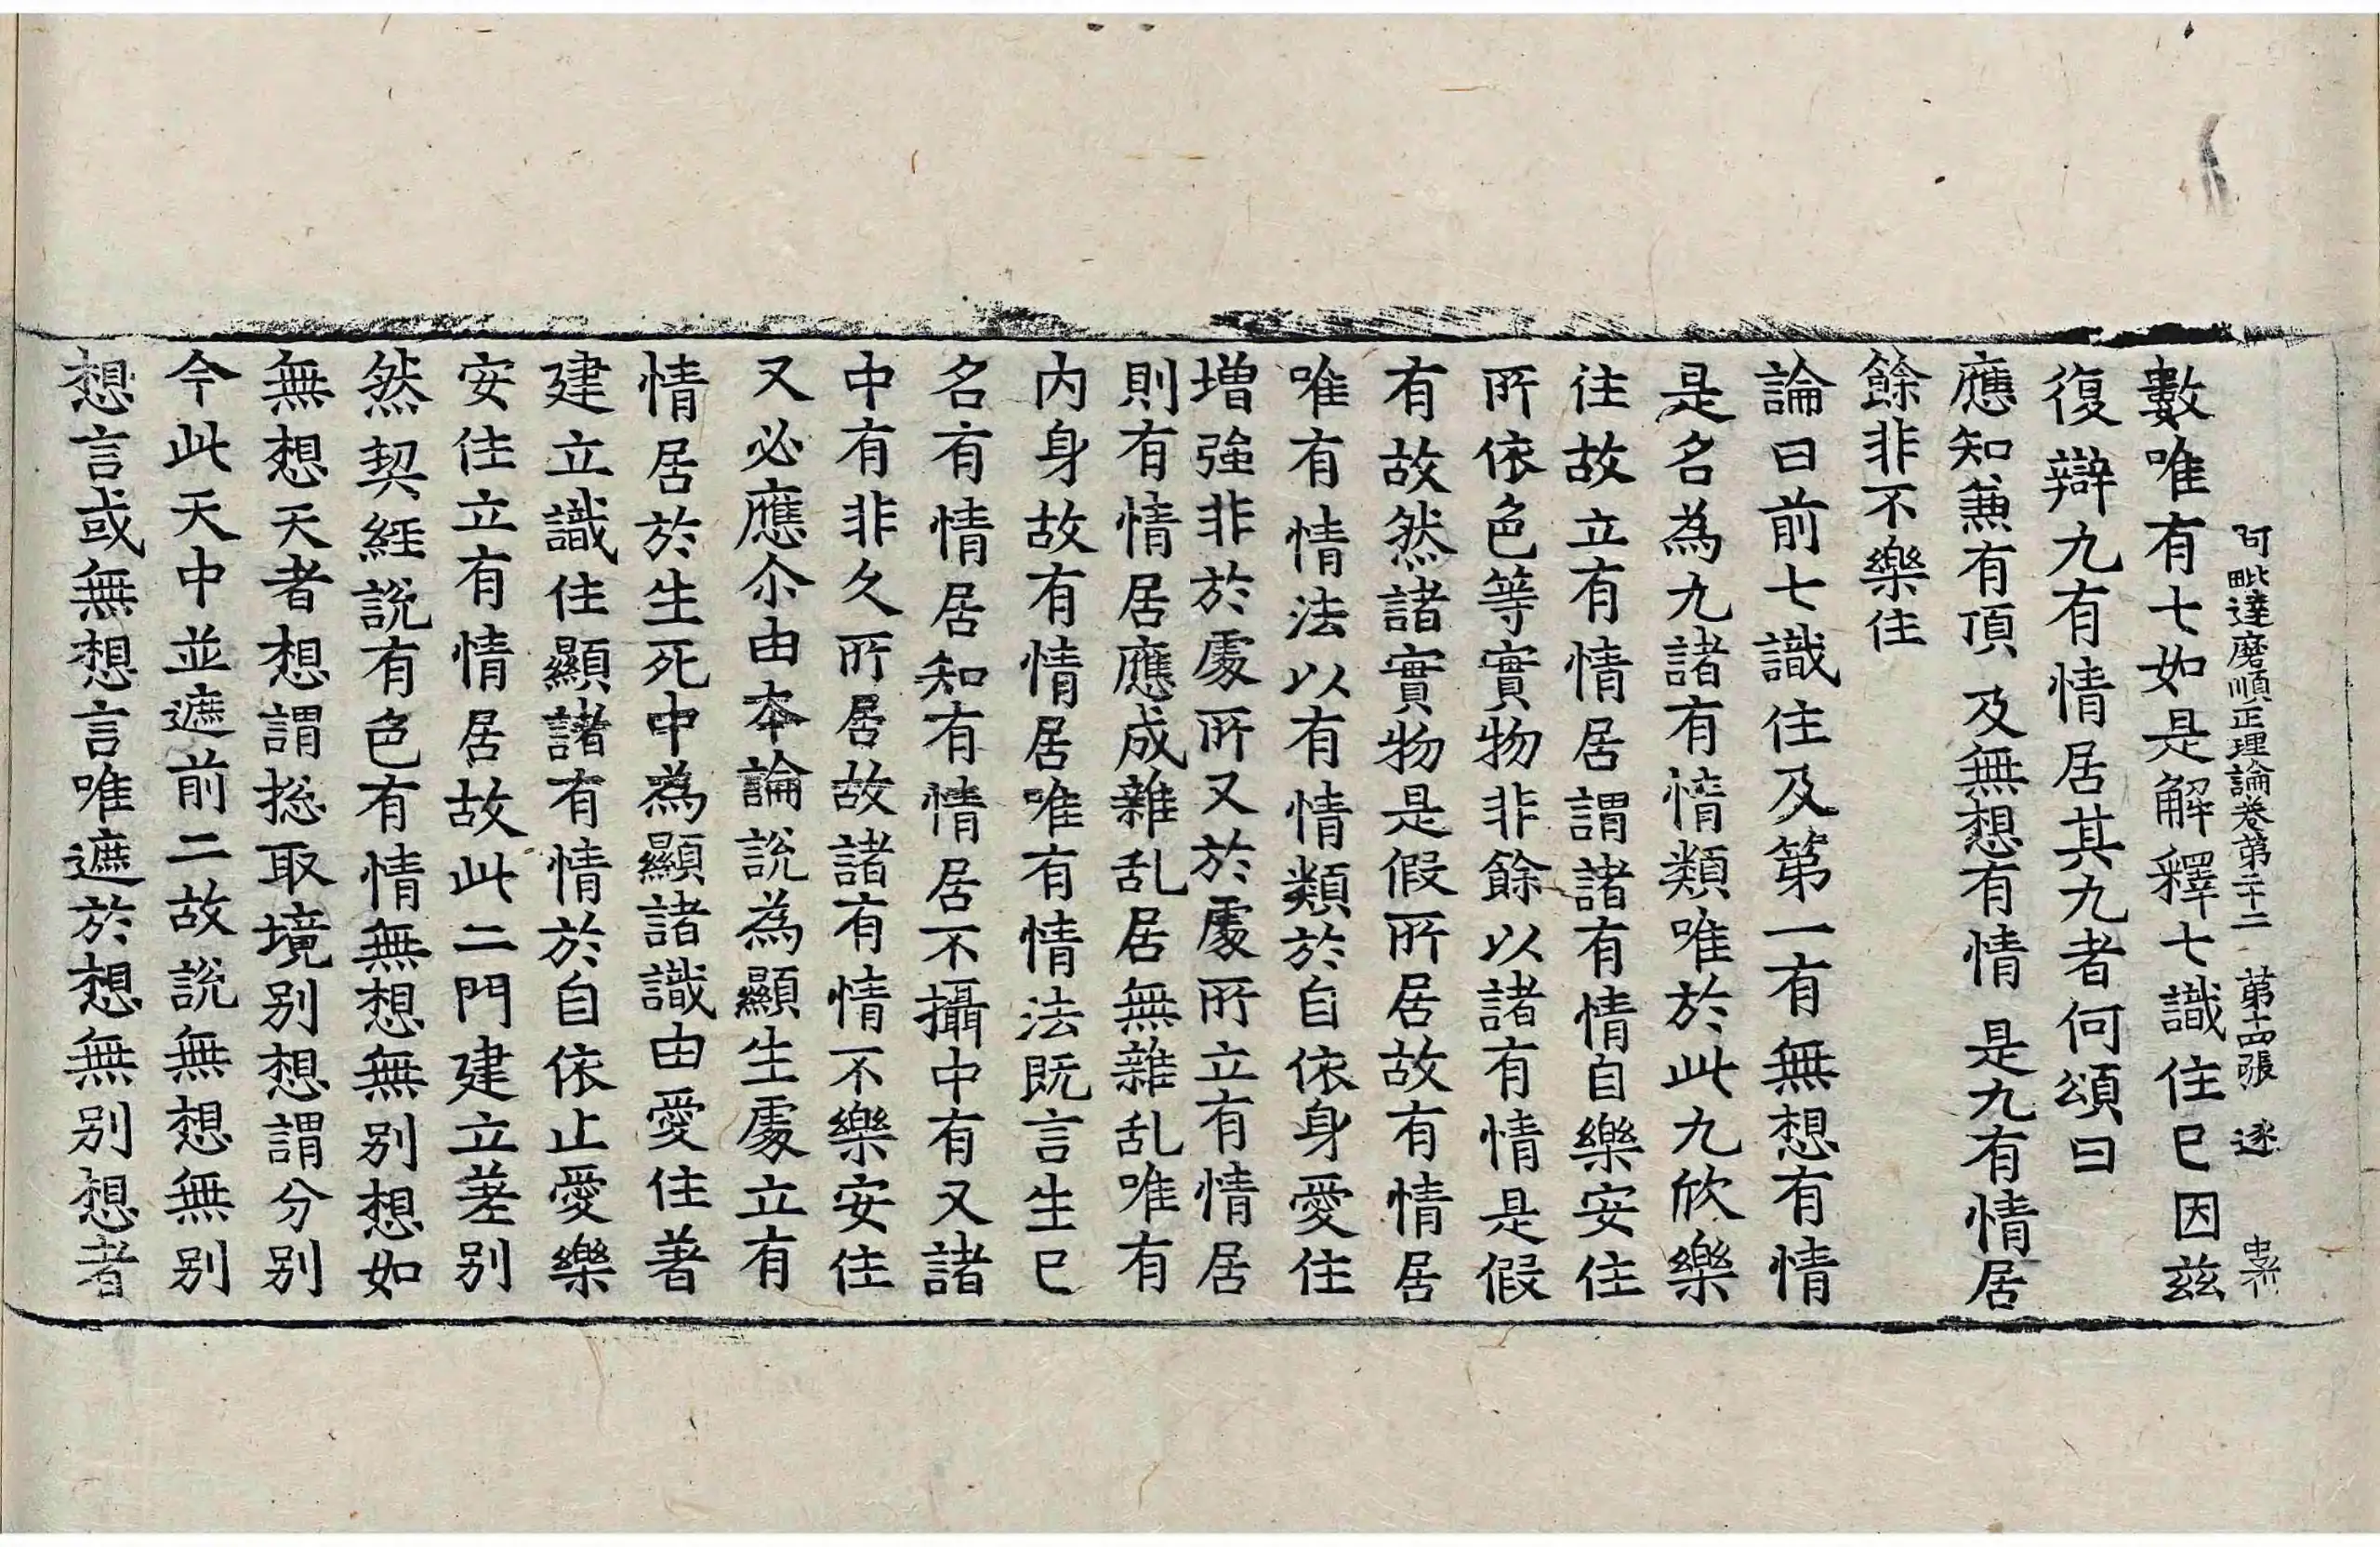 阿毗達磨順正理論卷第二十二 第十四張 逐
數唯有七如是解釋七識住已因兹
復辯九有情居其九者何頌曰
應知兼有頂 及無想有情 是九有情居
餘非不樂住
論曰前七識住及第一有無想有情
是名為九諸有情類唯於此九欣樂
住故立有情居謂諸有情自樂安住
所依色等實物非餘以諸有情是假
有故然諸實物是假所居故有情居
唯有情法以有情類於自依身愛住
增強非於處所又於處所立有情居
則有情居應成雜乱居無雜乱唯有
内身故有情居唯有情法既言生已
名有情居知有情居不攝中有又諸
中有非久所居故諸有情不樂安住
又必應尒由本論說為顯生處立有
情居於生死中為顯諸識由愛住著
建立識住顯諸有情於自依止愛樂
安住立有情居故此二門建立差别
然契經說有色有情無想無别想如
無想天者想謂捴取境别想謂分别
今此天中並遮前二故說無想無别
想言或無想言唯遮於想無别想者